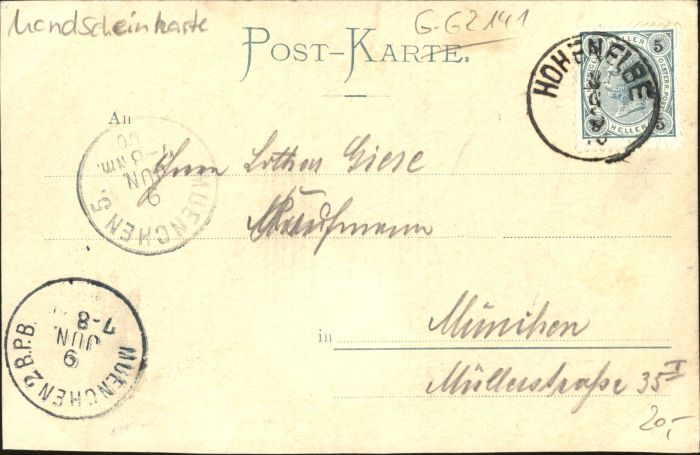 Mondscheinkarte
G. G2141
POST-KARTE.
5
HELLER
5
HOHENELBE
An
MUENCHEN 5.
9
JUN
7-8 Nm.
00
Herrn Lothar Giese
Kaufmann
MUENCHEN 2 B.P.B.
9
JUN
7-8
in
München
Müllerstraße 35 I
20,-